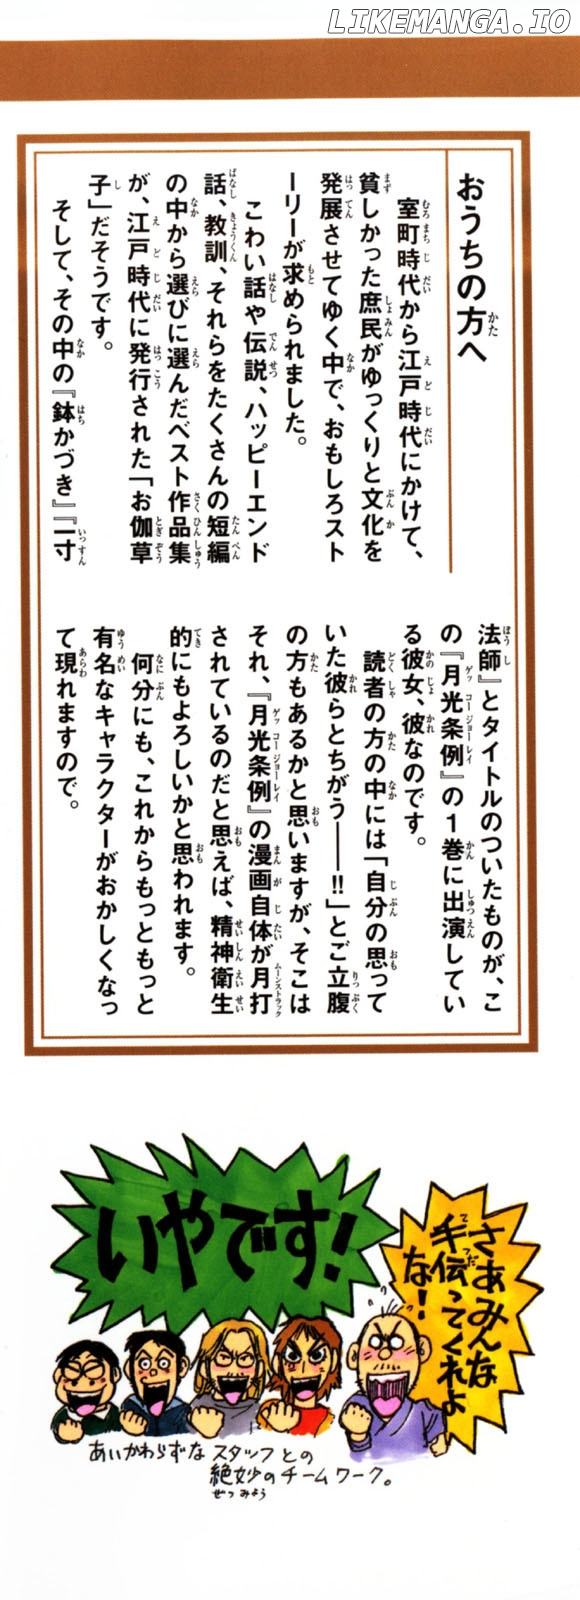 LIKEMANGA.IO
おうちの方へ
室町時代から江戸時代にかけて、
貧しかった庶民がゆっくりと文化を
発展させてゆく中で、おもしろスト
ーリーが求められました。
こわい話や伝説、ハッピーエンド
話、教訓、それらをたくさんの短編
の中から選びに選んだベスト作品集
が、江戸時代に発行された「お伽草
子」だそうです。
そして、その中の『鉢かづき』『一寸
法師』とタイトルのついたものが、こ
の『月光条例』の1巻に出演してい
る彼女、彼なのです。
読者の方の中には「自分の思って
いた彼らとちがう――!!」とご立腹
の方もあるかと思いますが、そこは
それ、『月光条例』の漫画自体が月打
されているのだと思えば、精神衛生
的にもよろしいかと思われます。
何分にも、これからもっともっと
有名なキャラクターがおかしくなっ
て現れますので。
さあみんな
手伝ってくれよ
な!
いやです!
あいかわらずなスタッフとの
絶妙のチームワーク。
ぜつみょう